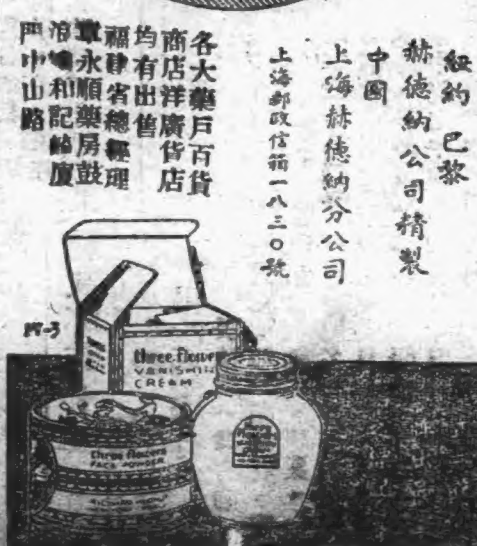 紐約 巴黎
赫德納公司精製
中國
上海赫德納分公司
上海郵政信箱一八三〇號
各大藥戶百貨
商店洋廣貨店
均有出售
福建省總經理
永順藥房鼓
浪嶼和記崎廈
門中山路
three flowers
VANISHING
CREAM
three flowers
FACE POWDER
RICHARD
three
flowers